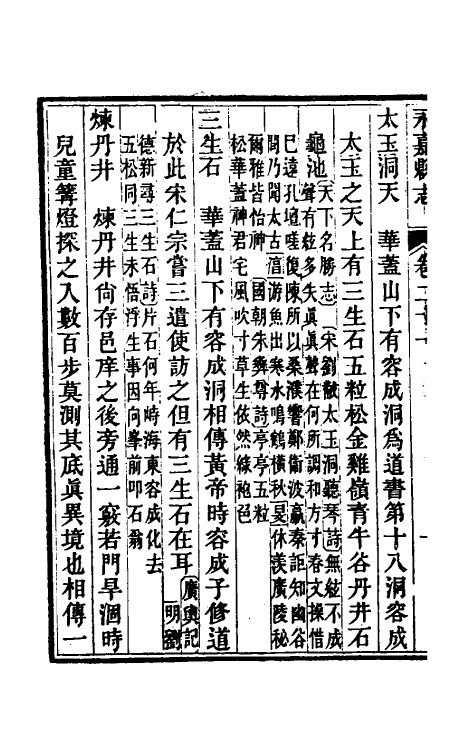 永嘉縣志 卷二十
太玉洞天　華蓋山下有容成洞為道書第十八洞容成
太玉之天上有三生石五粒松金雞嶺青牛谷丹井石
龜池
天下名勝志
宋劉黻太玉洞聽琴詩無絃不成
聲有絃多失真真聲在何所調和方寸春文操惜
已遠孔壇哇復陳所以桑濮響鄭衛波嬴秦詎知幽谷
閒乃聞太古淳游魚出寒水鳴鶴橫秋旻休羨廣陵秘
爾雅皆怡神
國朝朱彝尊詩亭亭五粒
松華蓋神君宅風吹寸草生依然綠袍色
三生石　華蓋山下有容成洞相傳黃帝時容成子修道
於此宋仁宗嘗三遣使訪之但有三生石在耳
廣輿記
明劉
德新尋三生石詩片石何年峙海東容成化去
五松同三生未悟浮生事因向峯前叩石翁
煉丹井　煉丹井尚存邑庠之後旁通一竅若門旱涸時
兒童篝燈探之入數百步莫測其底真異境也相傳一